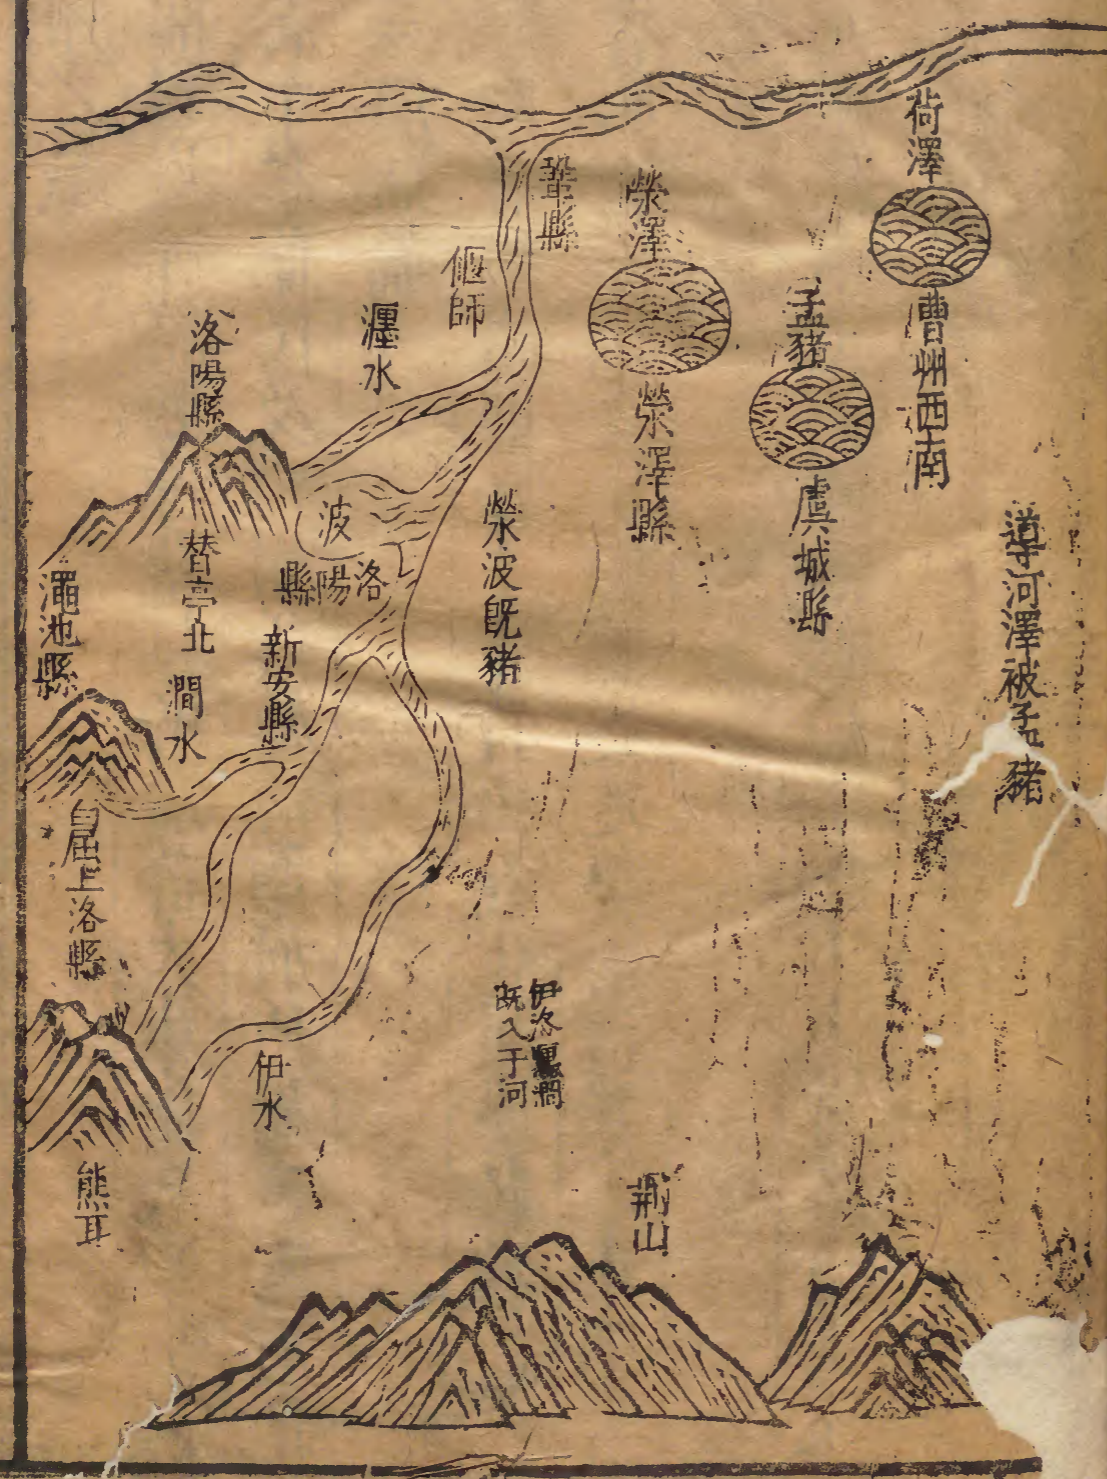 荷澤
曹州西南
導河澤被孟豬
孟豬
虞城縣
滎澤
滎澤縣
鞏縣
偃師
滎波既豬
瀍水
洛陽縣
波
洛陽縣
替亭北
新安縣
澗水
澠池縣
上洛縣
伊洛瀍澗
既入于河
伊水
熊耳
荆山